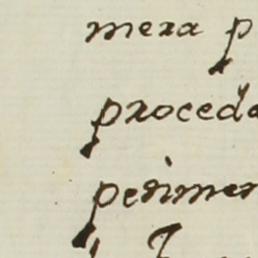 mera p
proceda
perimen